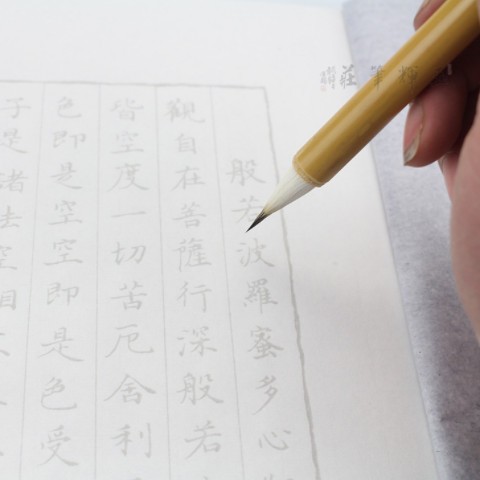 般若波羅蜜多心
觀自在菩薩行深般若
皆空度一切苦厄舍利
色即是空空即是色受
子是諸法空相不
輝筆莊